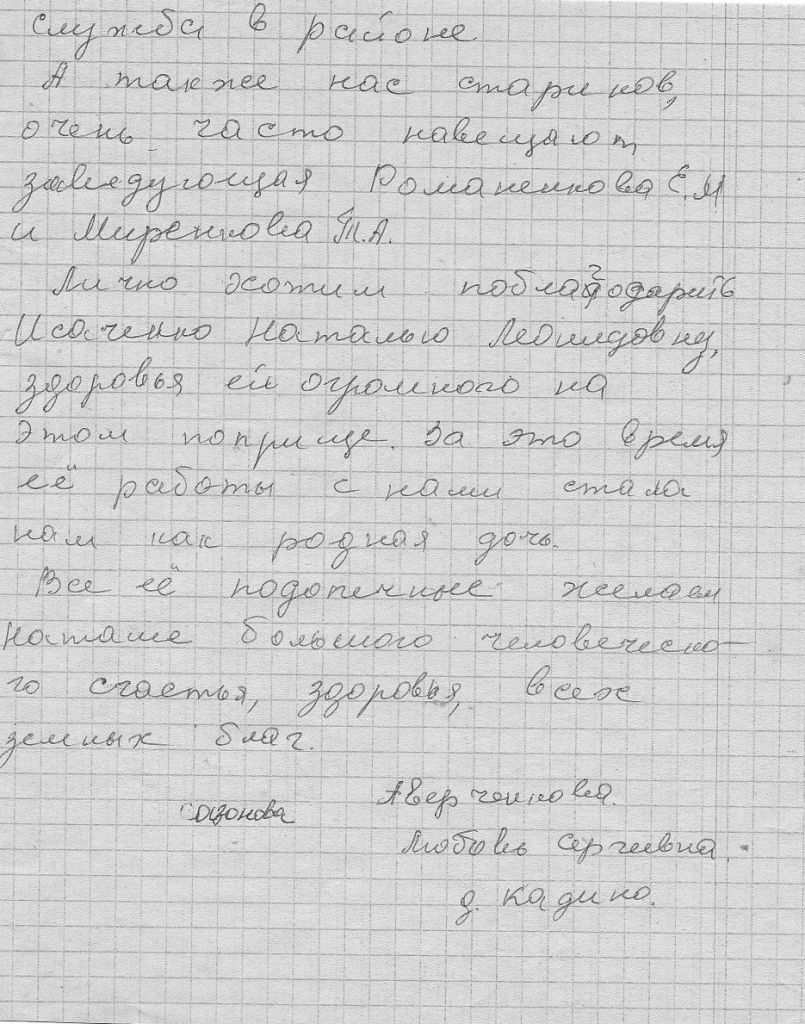 служба в районе.
А также нас стариков,
очень часто навещают
заведующая Романенкова Е.М
и Миренкова Т.А.
Лично хотим поблагодарить
Исаченко Наталью Леонидовну,
здоровья ей огромного на
этом поприще. За это время
её работы с нами стала
нам как родная дочь.
Все её подопечные желаем
Наташе большого человеческо-
го счастья, здоровья, всех
земных благ.
Аверченкова
Сазонова
Любовь Сергеевна.
д. Кадино.